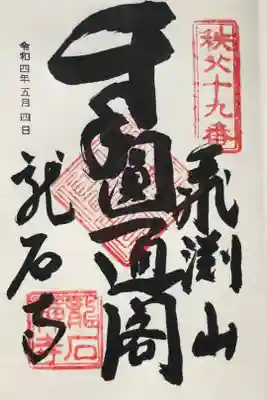 秩父十九番
飛渕山
圓通閣
龍石寺
龍石禪寺
令和四年五月四日